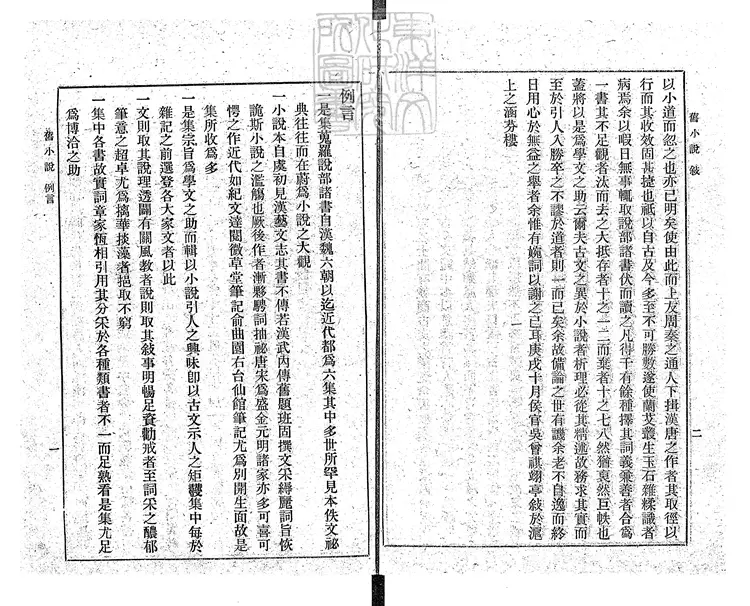 舊小說 敍
二
以小道而忽之也亦已明矣使由此而上友周秦之通人下揖漢唐之作者其取徑以
行而其收效固甚捷也祇以自古及今多至不可勝數遂使蘭艾叢生玉石雜糅識者
病焉余以暇日無事輒取說部諸書伏而讀之凡得千有餘種擇其詞義兼善者合爲
一書其不足觀者汰而去之大抵存者十之一二而棄者十之七八然猶裒然巨帙也
蓋將以是爲學文之助云爾夫古文之異於小說者析理必從其精述故務求其實而
至於引人入勝卒之不謬於道者則一而已矣余故備論之世有譏余老不自逸而終
日用心於無益之舉者余惟有婉詞以謝之已耳庚戌十月侯官吳曾祺翊亭敍於滬
上之涵芬樓
例言
一是集蒐羅說部諸書自漢魏六朝以迄近代都爲六集其中多世所罕見本佚文祕
典往往而在蔚爲小說之大觀
一小說本自虞初見漢藝文志其書不傳若漢武內傳舊題班固撰文采縟麗詞旨恢
詭斯小說之濫觴也厥後作者漸夥騁詞抽祕唐宋爲盛金元明諸家亦多可喜可
愕之作近代如紀文達閱微草堂筆記俞曲園右台仙館筆記尤爲別開生面故是
集所收爲多
一是集宗旨爲學文之助而輯以小說引人之興味卽以古文示人之矩矱集中每於
雜記之前選登各大家文者以此
一文則取其說理透闢有關風敎者說則取其敍事明暢足資勸戒者至詞采之醲郁
筆意之超卓尤爲摛華掞藻者挹取不窮
一集中各書故實詞章家恆相引用其分采於各種類書者不一而足熟看是集尤足
爲博洽之助
舊小說 例言
一